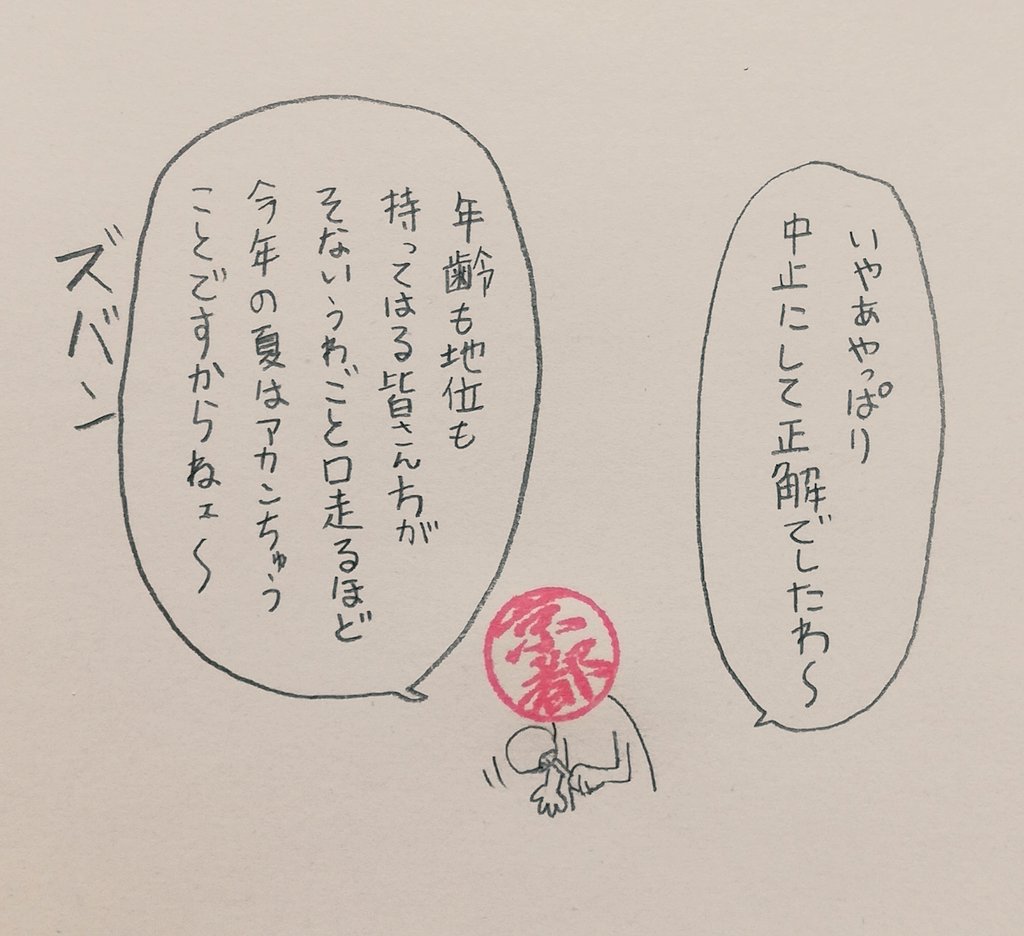 いやぁやっぱり
中止にして正解でしたわ〜
年齢も地位も
持ってはる皆さん方が
そないうわごと口走るほど
今年の夏はアカンちゅう
ことですからねェ〜
ズバン
京都